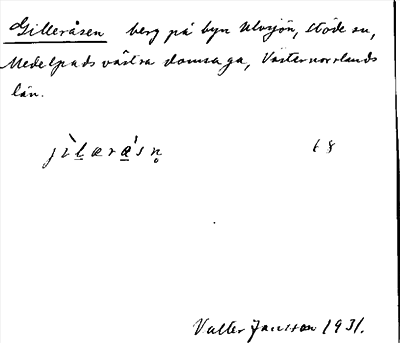 Gilleråsen berg på byn Ulvsjön, Stöde sn,
Medelpads västra domsaga, Västernorrlands
län.
jìlæræ̀sn̥ 68
Valter Jansson 1931.